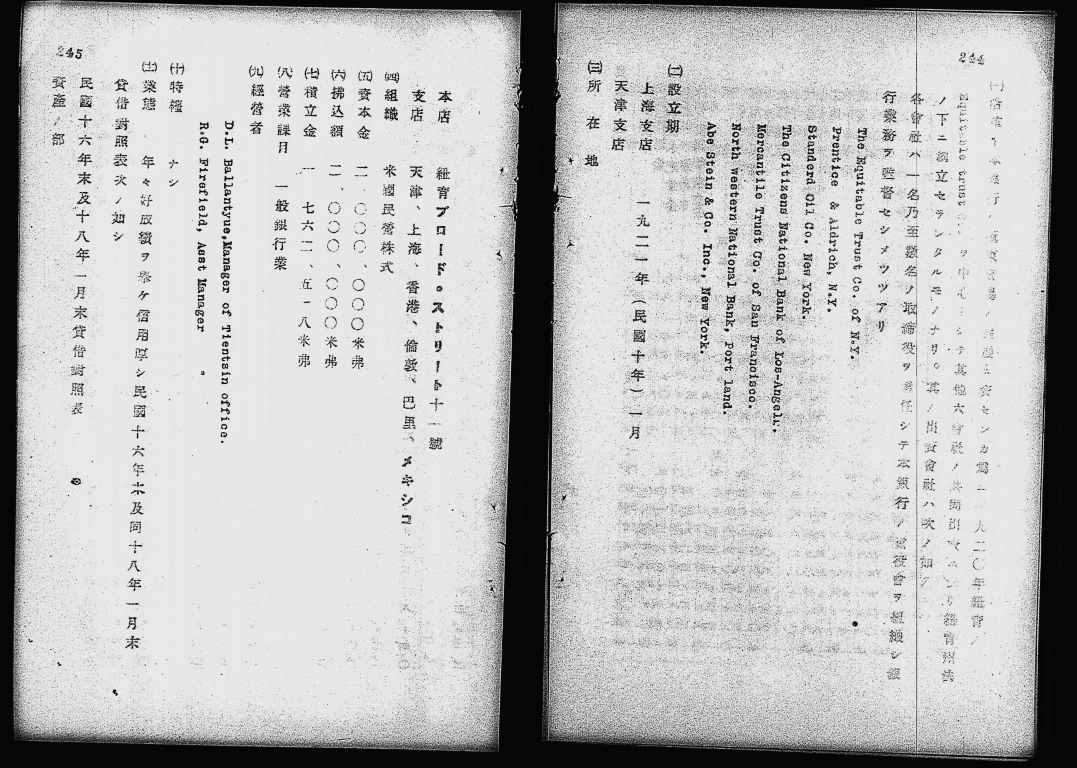 244
Equitable trust ヲ中心トシテ其他六會社ノ共同出資
ノ下ニ創立セラレタルモノナリ。其ノ出資會社ハ次ノ如ク
各會社ハ一名乃至數名ノ取締役ヲ選任シテ本銀行ノ重役會ヲ組織シ銀
行業務ヲ監督セシメツツアリ
The Equitable Trust Co. of N.Y.
Prentice & Aldrich, N.Y.
Standerd Oil Co. New York.
The Citizens National Bank of Los-Angels.
Mercantile Trust Co. of San Francisco.
North western National Bank, Port land.
Abe Stein & Co. Inc., New York.
(二)設立期
上海支店
天津支店 一九二一年(民國十年)一月
(三)所在地
245
本店 紐育ブロード。ストリート十一號
支店 天津、上海、香港、倫敦、巴里、メキシコ
(四)組織 米國民營株式
(五)資本金 二、〇〇〇、〇〇〇米弗
(六)拂込額 二、〇〇〇、〇〇〇米弗
(七)積立金 一七六二、五一八米弗
(八)營業課目 一般銀行業
(九)經營者
D.L. Ballantyue,Manager of Tientsin office.
R.G. Firefield, Asst Manager 〃
(十)特權 ナシ
(十一)業態 年々好成績ヲ擧ケ信用厚シ民國十六年末及同十八年一月末
貸借對照表次ノ如シ
民國十六年末及十八年一月末貸借對照表
資產ノ部